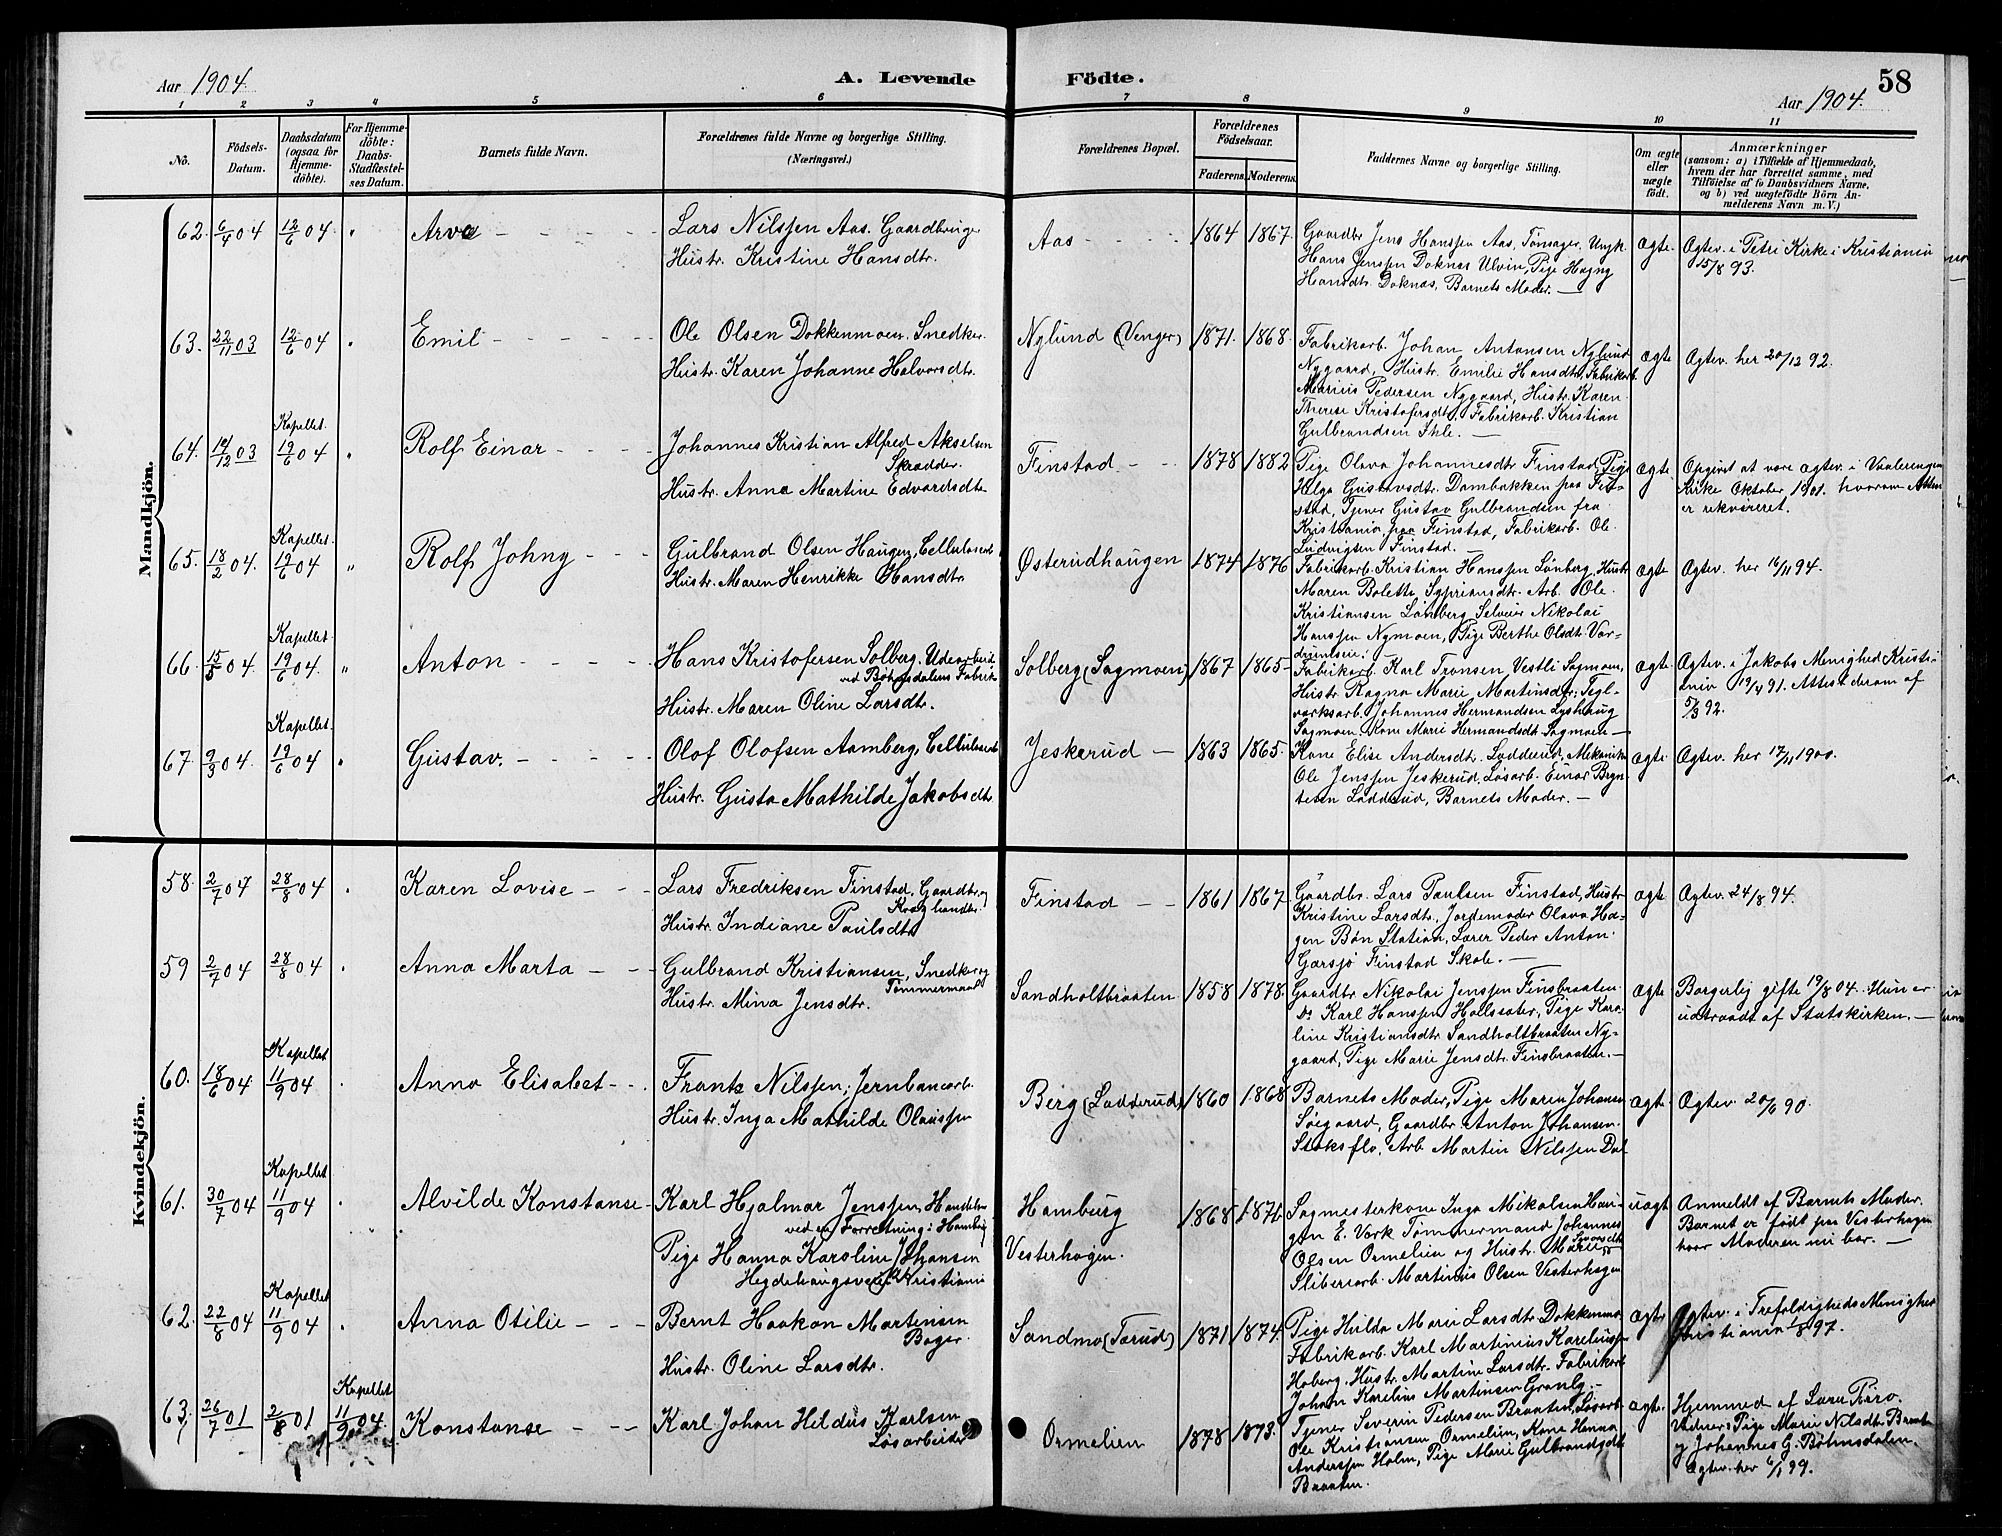 Aar 1904.
A. Levende Födte.
58
Aar 1904.
1 2 3 4 5 6 7 8 9 10 11
No.
Födsels-Datum.
Daabsdatum (ogsaa for Hjemme-döbte).
For Hjemme-döbte: Daabs-Stadfæstel-ses Datum.
Barnets fulde Navn.
Forældrenes fulde Navne og borgerlige Stilling. (Næringsvei.)
Forældrenes Bopæl.
Forældrenes Födselsaar.
Faderens. Moderens.
Faddernes Navne og borgerlige Stilling.
Om ægte eller uægte födt.
Anmærkninger
(saasom: a) i Tilfælde af Hjemmedaab,
hvem der har forrettet samme, med
Tilföielse af to Daabsvidners Navne,
og b) ved uægtefödte Börn An-
melderens Navn m. V.)
Mandkjön.
62. 6/4 04 12/6 04. Arve
Lars Nilssen Aas. Gaardbruger
Hustr. Kristine Hansdtr.
Aas 1864 1867.
Gaardbr Jens Hanssen Aas, Tønsager, Ungk.
Hans Jenssen Doknæs Ulvin, Pige Hagny
Hansdtr. Doknæs, Barnets Moder. —
Ægte.
Ægtev. i Petri Kirke i Kristiania
15/8 93.
63. 22/11 03 12/6 04 Emil
Ole Olsen Dokkenmoen. Snedker
Hustr. Karen Johanne Halvorsdtr.
Nylund (Venger) 1871. 1868.
Fabrikarb. Johan Antonsen Nylund
Nygaard, Hustr. Emilie Hansdtr, Fabrikarb.
Marius Pedersen Nygaard, Hustr. Karen
Therese Kristofersdt, Fabrikarb. Kristian
Gulbrandsen Ihle. —
Ægte
Ægtev. her 20/12 92.
Kapellet
64. 14/12 03 19/6 04 Rolf Einar
Johannes Kristian Alfred Akselsen
Skrædder.
Hustr. Anna Martine Edvardsdtr
Finstad 1878 1882
Pige Olava Johannesdtr Finstad, Pige
Helga Gustavsdtr. Dambakken paa Fin-
stad, Tjener Gustav Gulbrandsen fra
Kristiania, paa Finstad, Fabrikarb. Ole
Ludvigsen Finstad. —
Ægte
Opgivet at være ægtev. i Vaalerengen
Kirke Oktober 1901. hvorom Attest
er rekvireret.
Kapellet
65. 18/2 04. 19/6 04 Rolf Johny
Gulbrand Olsen Haugen, Cellulosearb
Hustr. Maren Henrikke Hansdtr.
Østerudhaugen 1874 1876
Fabrikarb. Kristian Hanssen Lønberg, Hustr
Maren Bolette Syprionsdtr. Arb. Ole
Kristiansen Lønberg, Selveier Nikolai
Hanssen Nymoen, Pige Berthe Olsdtr. Var-
Ægte
Ægtev. her 16/11 94.
Kapellet
66 15/5 04. 19/6 04. Anton
Hans Kristofersen Solberg. Udearbeid.
ved Bøhnsdalens Fabrik
Hustr. Maren Oline Larsdtr.
Solberg (Sagmoen) 1867 1865
Fabrikarb. Karl Tronsen Vestli Sagmoen,
Hustr Ragna Marie Martinsdtr; Tegl-
værksarb. Johannes Hermandsen Lyshaug
Sagmoen. Kone Marie Hermandsdt Sagmoen —
ægte.
Ægtev. i Jakobs Menighed Kristi-
ania 19/4 91. Attest derom af
5/3 92.
Kapellet
67 9/3 04. 19/6 04 Gustav.
Olof Olofsen Aamberg, Cellulosearb
Hustr. Gusta Mathilde Jakobsdtr
Jeskerud — 1863 1865.
Kone Elise Andersdtr. Ladderud, Mekaniker
Ole Jenssen Jeskerud, Løsarb. Einar Bryn-
tesen Ladderud, Barnets Moder. —
Ægte.
Ægtev. her 17/11 1900.
Kvindekjön.
58. 2/7 04 28/8 04 Karen Lovise
Lars Fredriksen Finstad. Gaardbr og
Hustr. Indiane Paulsdtr
Finstad 1861 1867
Gaardbr. Lars Paulsen Finstad, Hustr
Kristine Larsdtr, Jordemoder Olava Ha-
gen Bøn Station, Lærer Peder Anton
Garsjø Finstad Skole. —
ægte.
Ægtev. 24/8 94.
59 2/7 04 28/8 04 Anna Marta
Gulbrand Kristiansen, Snedker og
Tømmermand
Hustr. Mina Jensdtr.
Sandholtbraaten 1858 1878.
Gaardbr Nikolai Jenssen Finsbraaten
Do Karl Hanssen Hollsæter, Pige Karo-
line Kristiansdtr Sandholtbraaten Ny-
gaard, Pige Marie Jensdtr. Finsbraaten. —
Ægte
Borgerlig gifte 19/8 04. Hun er
udtraadt af Statskirken. —
Kapellet
60. 18/6 04 11/9 04 Anna Elisabet
Frantz Nilssen; Jernbanearb.
Hustr. Inga Mathilde Olaussen
Berg (Ladderud) 1860 1868
Barnets Moder, Pige Maren Johansen
Søegaard, Gaardbr. Anton Johansen
Stoksflo, Arb Martin Nilssen Dal
ægte.
Ægtev. 20/6 90.
Kapellet
61. 30/7 04 11/9 04 Alvilde Konstanse
Karl Hjalmar Jenssen, Handels
ved en Forretning i Hamburg
Pige Hanna Karoline Johansen
Hamburg
Vesterhagen.
1868 1871
Sagmesterkone Inga Mikalsen Hau-
gen E. Værk Tømmermand Johannes
Olsen Ormelien og Hustr. Marie
Sliberiarb. Martinius Olsen Vesterhagen
uægte
Anmeldt af Barnets Moder.
Barnet er født paa Vesterhagen
hvor Moderen nu bor. —
Kapellet
62. 22/8 04 11/9 04 Anna Otilie
Bernt Haakon Martinsen
Bager.
Hustr. Oline Larsdtr.
Sandmo (Tærud) 1871 1874.
Pige Hilda Marie Larsdtr Dokkenmo,
Fabrikarb. Karl Martinius Kareliussen
Hoberg. Hustr. Martine Larsdtr. Fabrikarb
Johan Karelius Martinsen Granly. —
ægte
Ægtev. i Trefoldigheds Menighed
Kristiania 1/8 97.
Kapellet
63. 26/7 01 2/8 01 11/9 04. Konstanse
Karl Johan Heldus Karlsen
Løsarbeider
Ormelien 1878 1873.
Tjener Severin Pedersen Braaten, Løsarb
Ole Kristiansen Ormelien, Kone Hanna
Anderssen Holm, Pige Marie Gulbrandsdtr
Braaten.
ægte.
Hjemmed af Lærer Røro.
Vidner: Pige Marie Nilsdtr. Braaten
og Johannes G. Bøhnsdalen.
Ægtev. her 6/1 99.